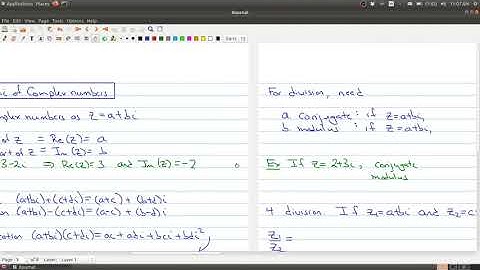 Applications Places
Journal
File Edit View Page Tools Options Help
of Complex numbers
complex numbers as z=a+bi
of z = Re(z) = a
part of z = Im(z) = b
3-2i ⇒ Re(z)=3 and Im(z)=-2
(a+bi)+(c+di)=(a+c)+(b+d)i
(a+bi)-(c+di)=(a-c)+(b-d)i
(a+bi)(c+di)=ac+adi+bci+bdi²
For division, need
a. conjugate: if z=a+bi,
b. modulus: if z=a+bi,
Ex If z=2+3i, conjugate
modulus
4 division. If z₁=a+bi and z₂=c
z₁/z₂ =
Page
Layer
Journal